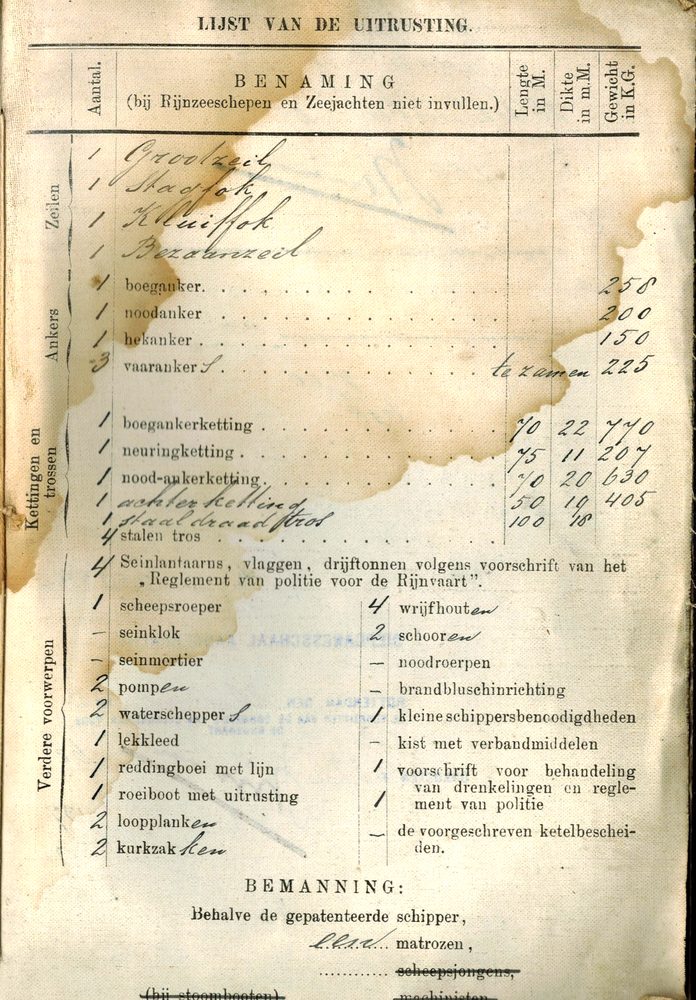 LIJST VAN DE UITRUSTING.
Aantal. BENAMING Lengte in M. Dikte in m.M. Gewicht in K.G.
(bij Rijnzeeschepen en Zeejachten niet invullen.)
Zeilen
1 Grootzeil
1 Stagfok
1 Kluiffok
1 Bezaanzeil
Ankers
1 boeganker. 258
1 noodanker 200
1 hekanker 150
3 vaarankers te zamen 225
Kettingen en trossen
1 boegankerketting 70 22 770
1 neuringketting 75 11 207
1 nood-ankerketting 70 20 630
1 achterketting 50 19 405
1 staaldraad tros 100 18
4 stalen tros
Verdere voorwerpen
4 Seinlantaarns, vlaggen, drijftonnen volgens voorschrift van het
„Reglement van politie voor de Rijnvaart”.
1 scheepsroeper
– seinklok
– seinmortier
2 pompen
2 waterscheppers
1 lekkleed
1 reddingboei met lijn
1 roeiboot met uitrusting
2 loopplanken
2 kurkzakken
4 wrijfhouten
2 schooren
– noodroerpen
– brandbluschinrichting
1 kleine schippersbenoodigdheden
– kist met verbandmiddelen
1 voorschrift voor behandeling
van drenkelingen en regle-
1 ment van politie
– de voorgeschreven ketelbeschei-
den.
BEMANNING:
Behalve de gepatenteerde schipper,
een matrozen,
scheepsjongens,
(bij stoombooten) machinisten